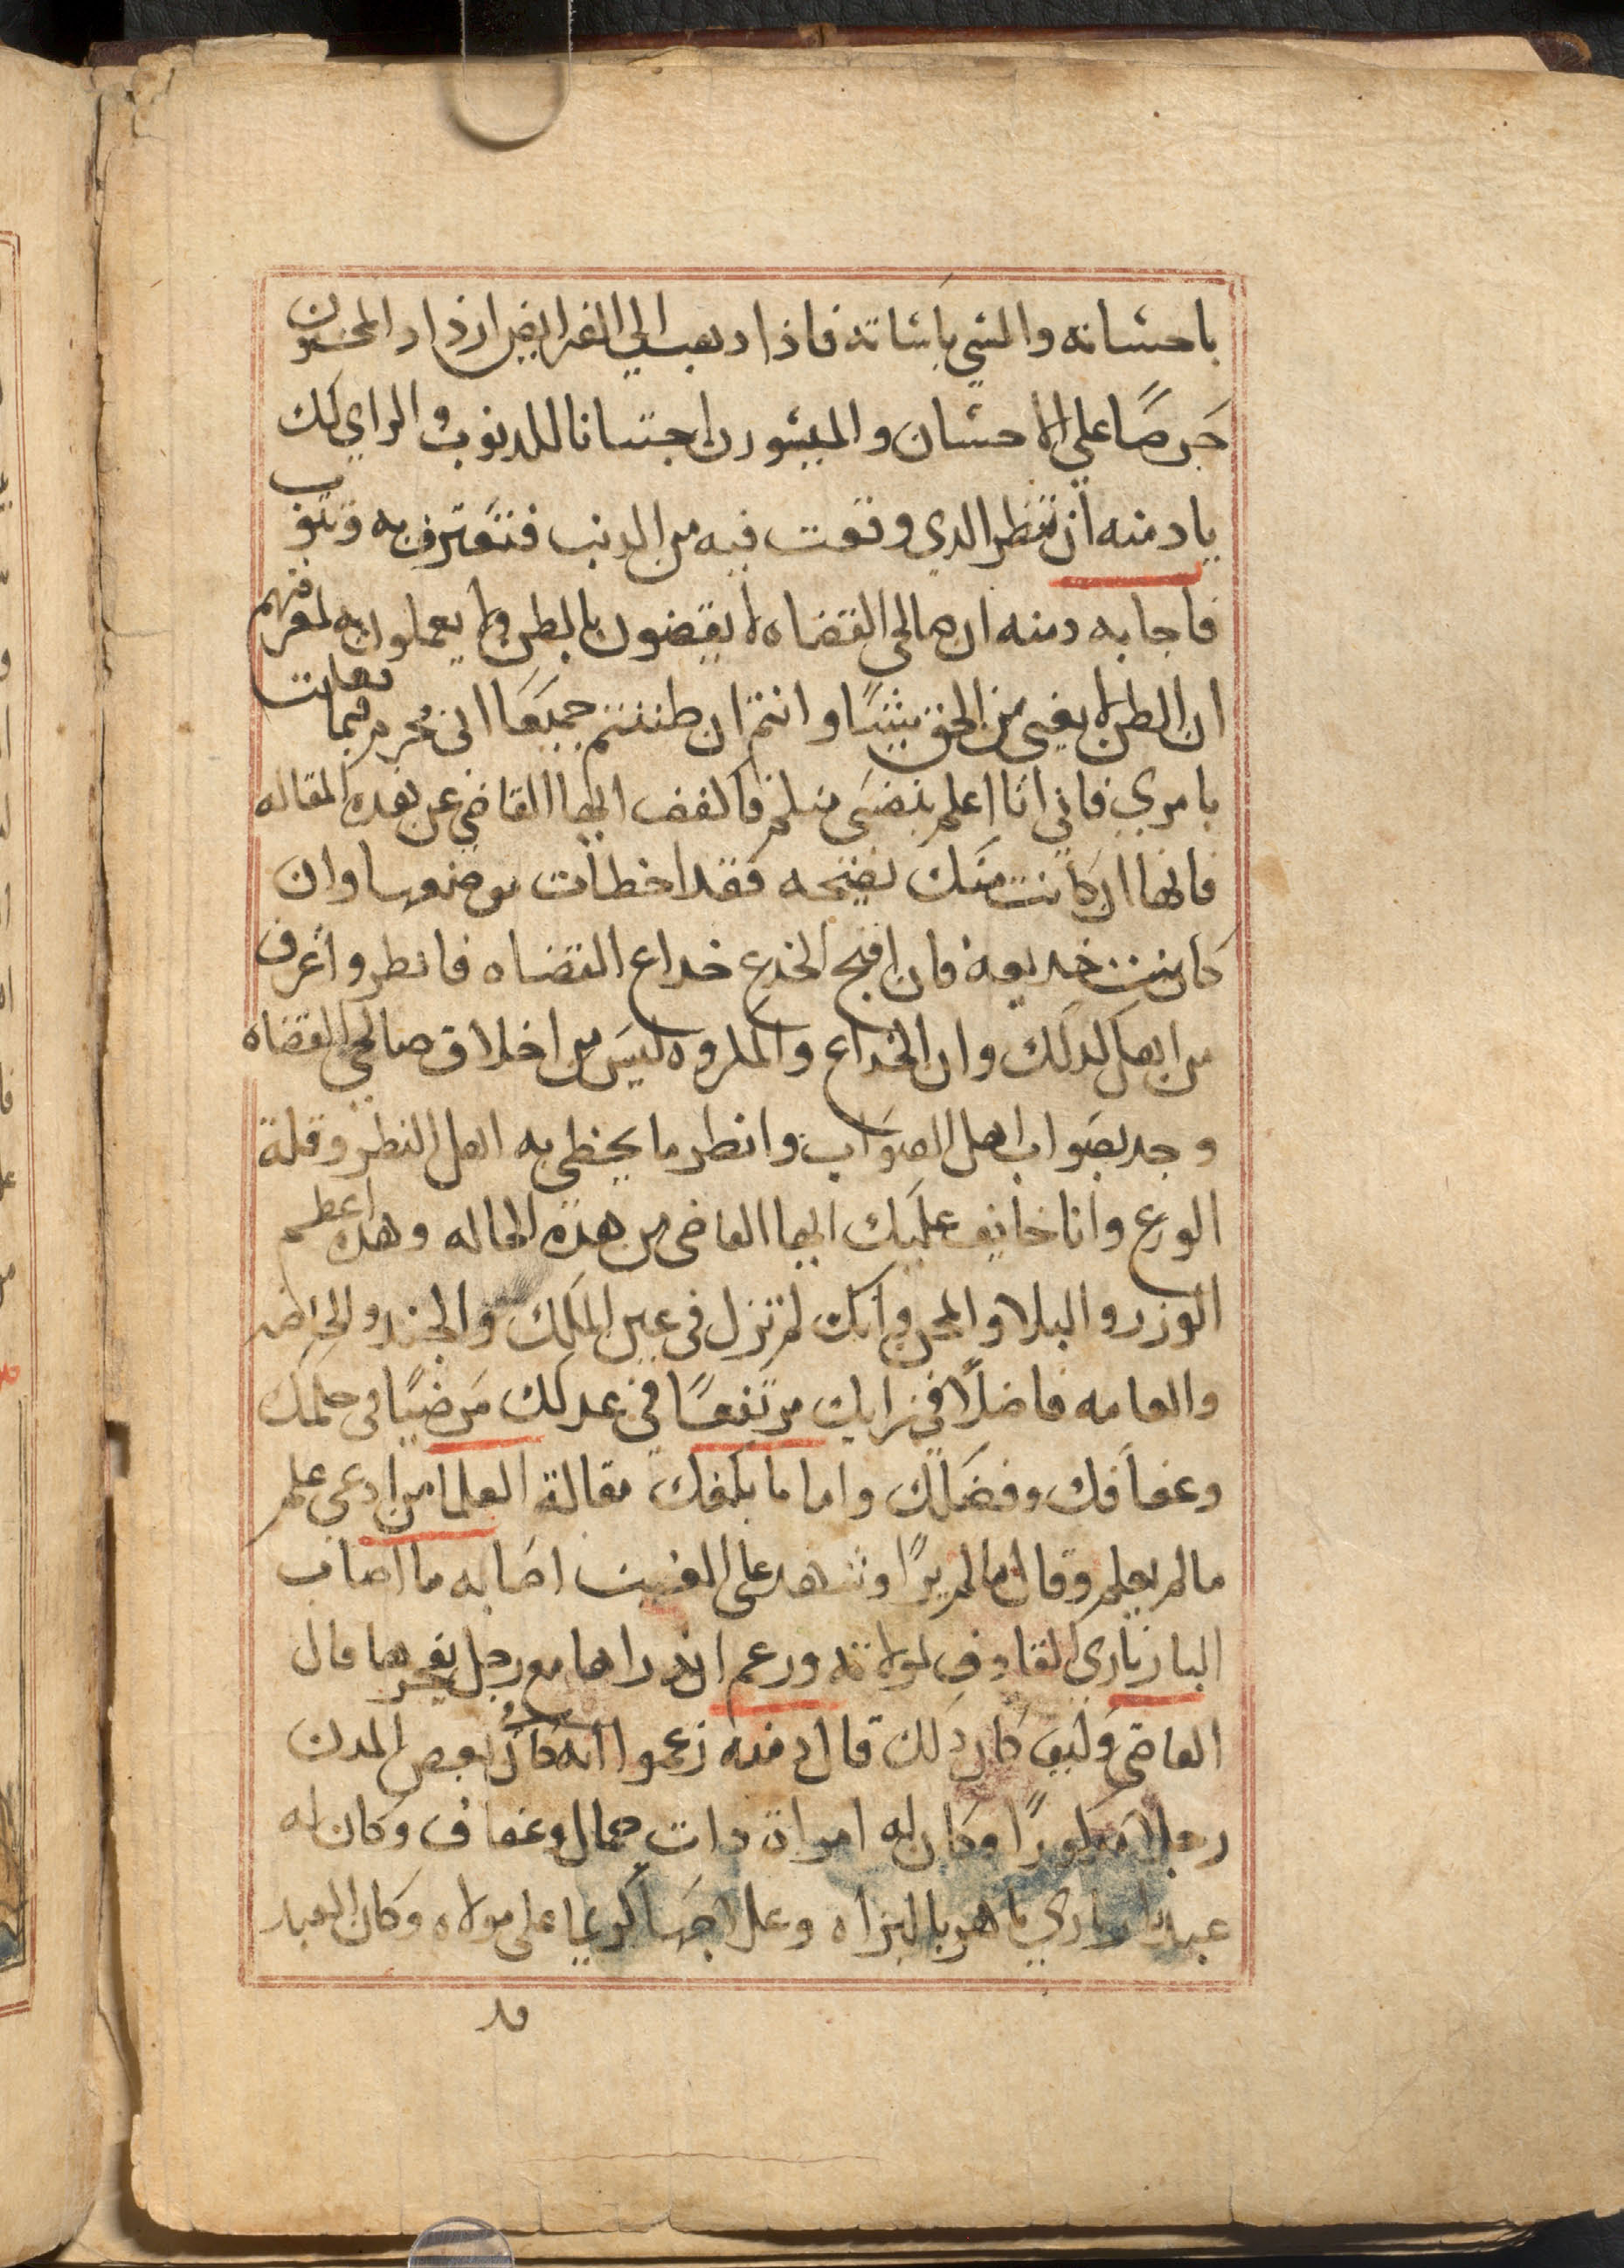 باحشانه والمشي باشاته فاذا دهب الي الفرايض ازداد المحسنون
حرصًا علي الاحشان والميشورن اجتنابا للدنوب والراي لك
يا دمنه ان تنظر الدي وقعت فيه من الدنب فتعترف به وتتوب
فاجابه دمنه ان صالحي القضاه لا يقضون بالظن ولا يعملون به لمعرفتهم
ان الظن لا يغني من الحق شيًا وانتم ان ظننتم جميعًا اني مجرم فيما فعلت
بامري فاني انا اعلم بنفسي منكم فاكفف ايها القاضي عن هده المقاله
فانها ان كانت منك نصيحه فقد اخطات موضعها وان
كانت خديعه فان اقبح الخدع خداع القضاه فانظر واعرف
من اهل كدلك وان الخداع والمكروه ليس من اخلاق صالحي القضاه
وجد بصواب اهل الصواب وانظر ما يخطي به اهل النظر وقلة
الورع وانا خايف عليك ايها القاضي من هده الحاله وهده اعظم
الوزر والبلا والمحن وانك لم تزل في عين الملك والجند والخاصه
والعامه فاضلًا في رايك مرتفعًا في عدلك مرضيًا في حكمك
وعفافك وفضلك واما ما بلغك مقالة العلما من ادعي علم
ما لم يعلم وقال ما لم يرا وشهد علي الغيب اصابه ما اصاب
البازياري القادف لمولاته وزعم انه راها مع رجل يفجر بها قال
القاضي وكيف كان دلك قال دمنه زعموا انه كان في بعض المدن
رجلا مدكورًا وكان له امراة دات جمال وعفاف وكان له
عبدا بازياري ماهر بالبزاه وعلاجها كريما علي مولاه وكان العبد
قد